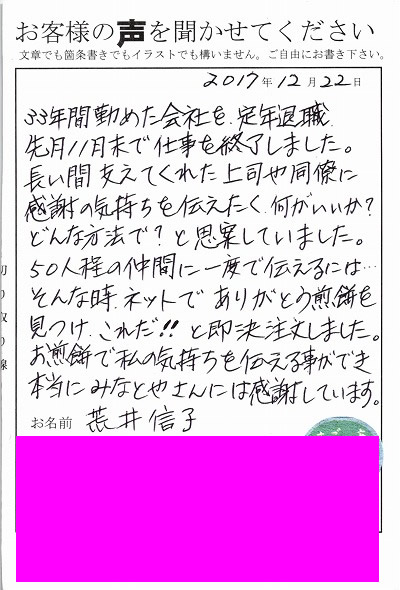 お客様の声を聞かせてください
文章でも箇条書きでもイラストでも構いません。ご自由にお書き下さい。
2017年12月22日
33年間勤めた会社を、定年退職、
先月11月末で仕事を終了しました。
長い間支えてくれた上司や同僚に
感謝の気持ちを伝えたく、何がいいか?
どんな方法で?と思案していました。
50人程の仲間に一度で伝えるには…
そんな時、ネットでありがとう煎餅を
見つけ、これだ!!と即決注文しました。
お煎餅で私の気持ちを伝える事ができ
本当にみなとやさんには感謝しています。
お名前 荒井信子
切り取り線